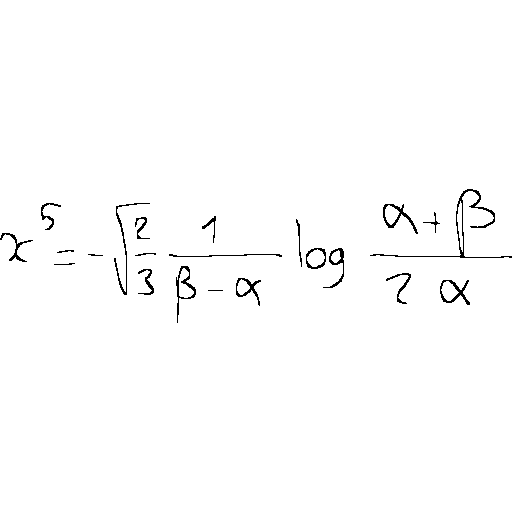 x^5 = -\sqrt{\frac{2}{3}} \frac{1}{\beta - \alpha} \log \frac{\alpha + \beta}{2 \alpha}